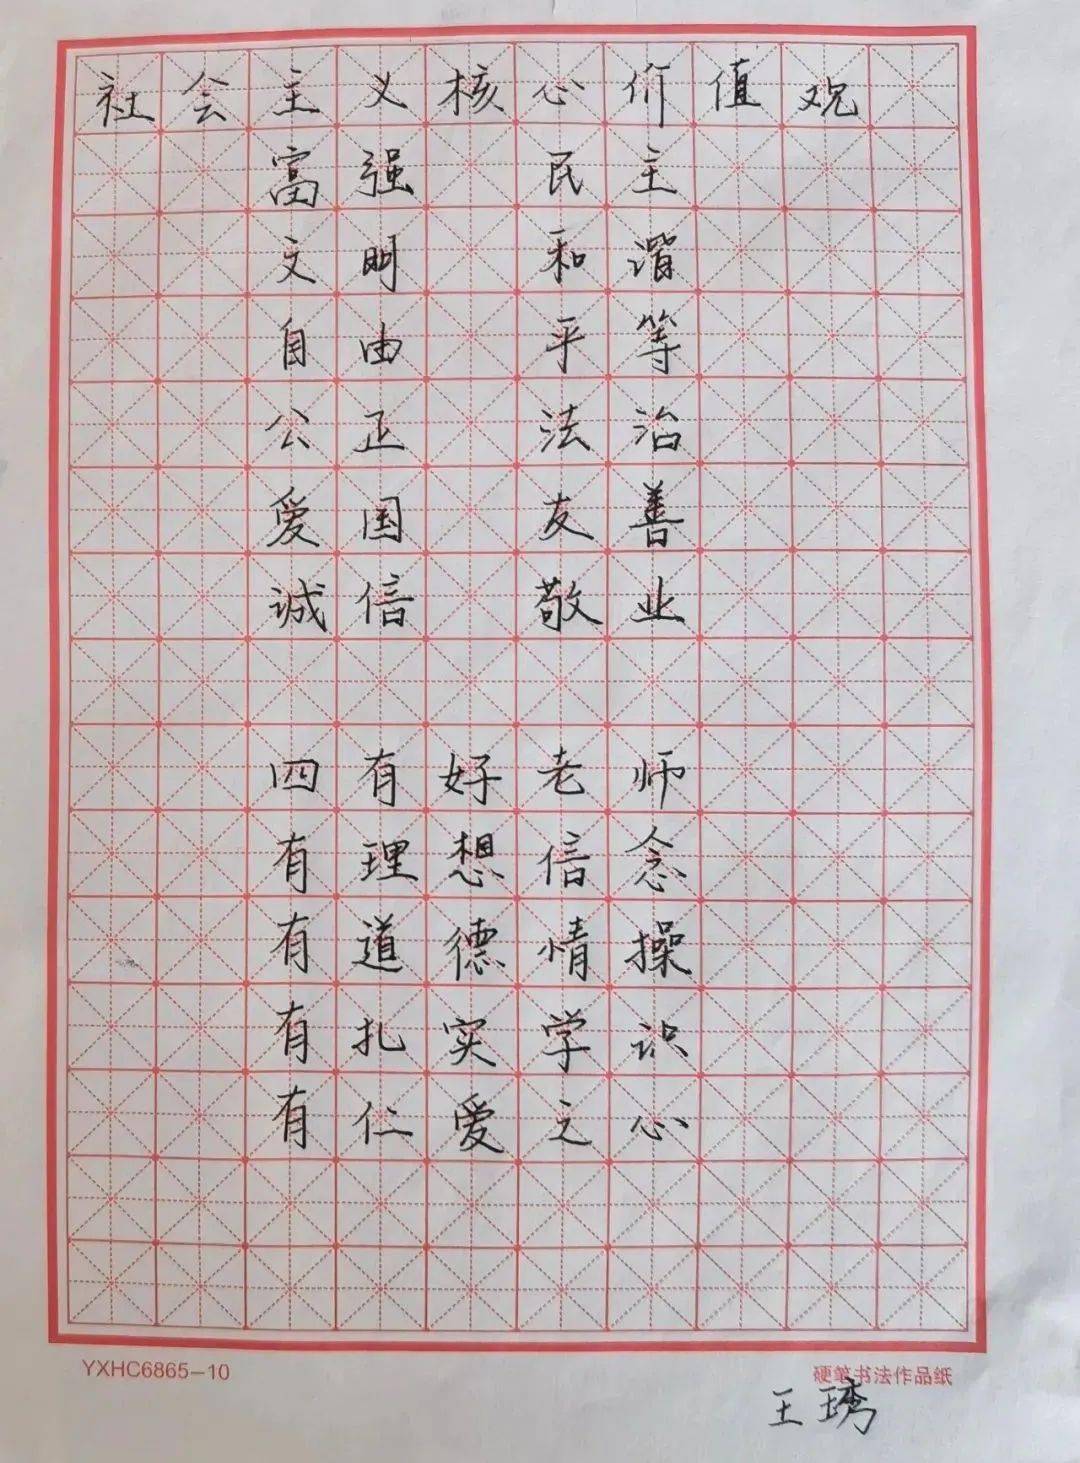 社会主义核心价值观
富强 民主
文明 和谐
自由 平等
公正 法治
爱国 友善
诚信 敬业
四有好老师
有理想信念
有道德情操
有扎实学识
有仁爱之心
YXHC6865-10 硬笔书法作品纸
王琇